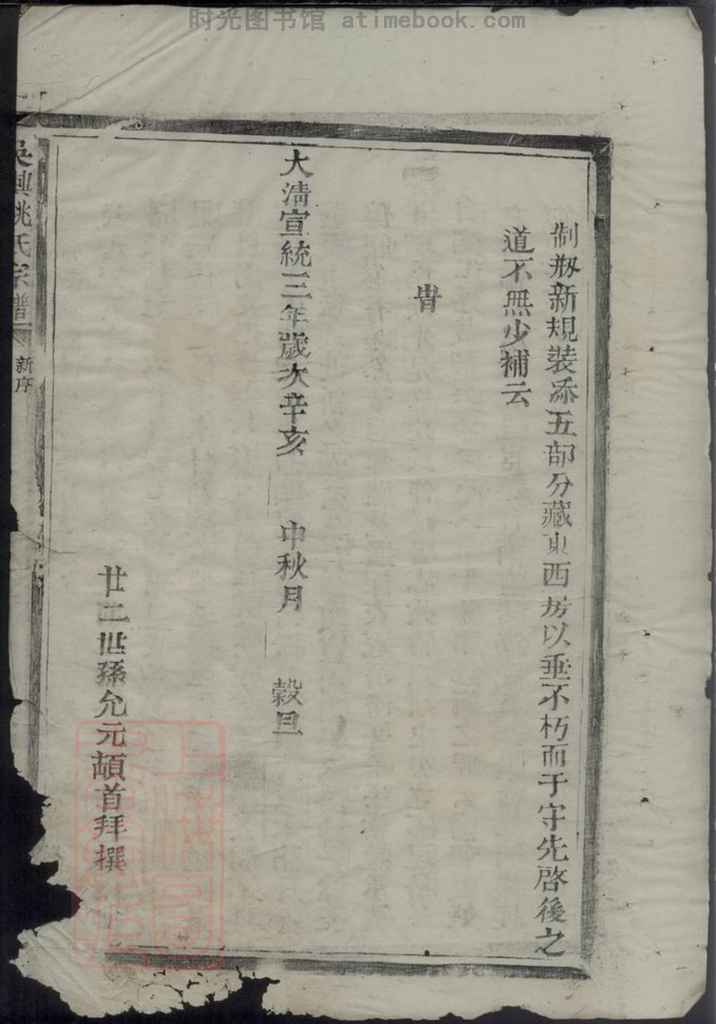 时光图书馆 atimebook.com
制刱新規裝添五部分藏東西房以垂不朽而于守先啓後之
道不無少補云
旹
大清宣統三年歲次辛亥 中秋月 穀旦
廿二世孫允元頓首拜撰
吳興姚氏宗譜 新序